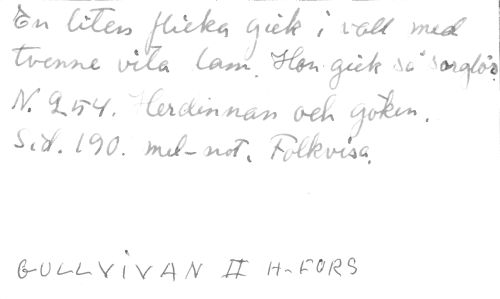 En liten flicka gick i vall med
tvenne vita lam. Hon gick så sorglös.
N. 254. Herdinnan och göken.
Sid. 190. mel-not. Folkvisa.
GULLVIVAN II H-FORS